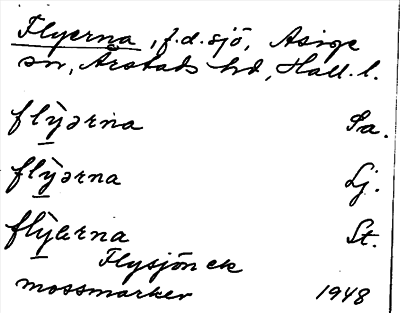 Flyerna, f.d. sjö, Asige
sn, Årstads hd, Hall. l.
flỳərna Sa.
flỳərna Lj.
flỳerna St.
Flysjön ek
mossmarker 1948